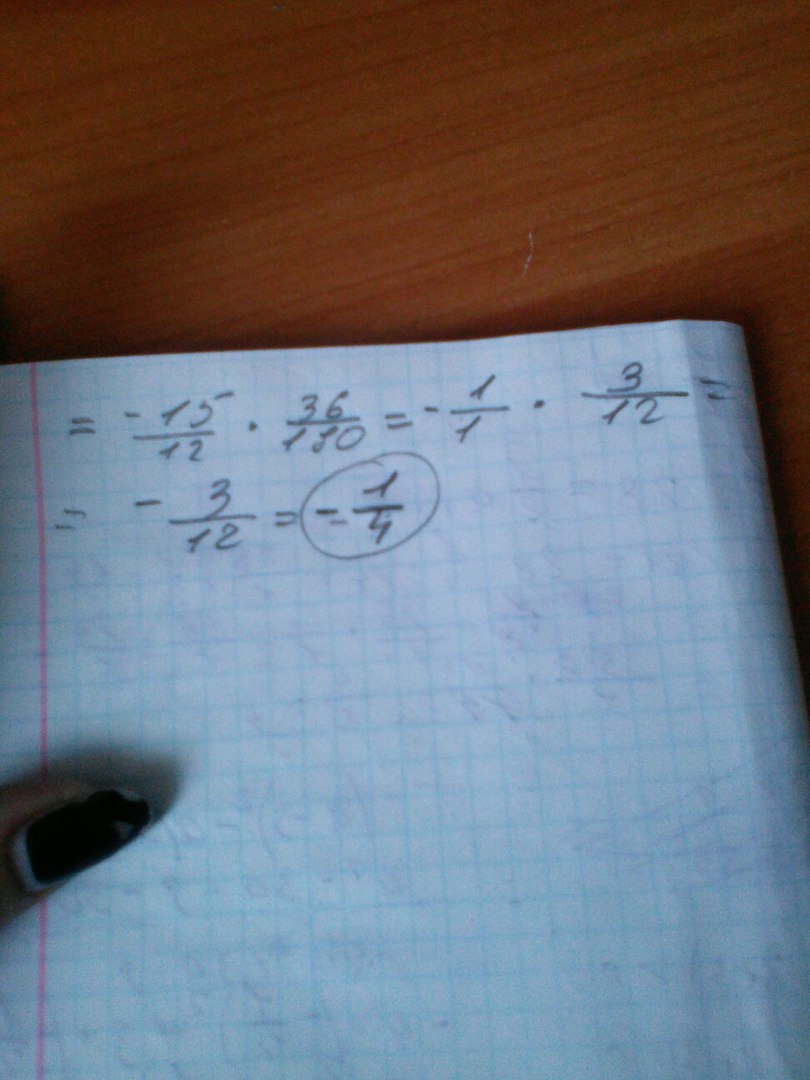 = -15/12 · 36/180 = - 1/1 · 3/12 =
= - 3/12 = - 1/4